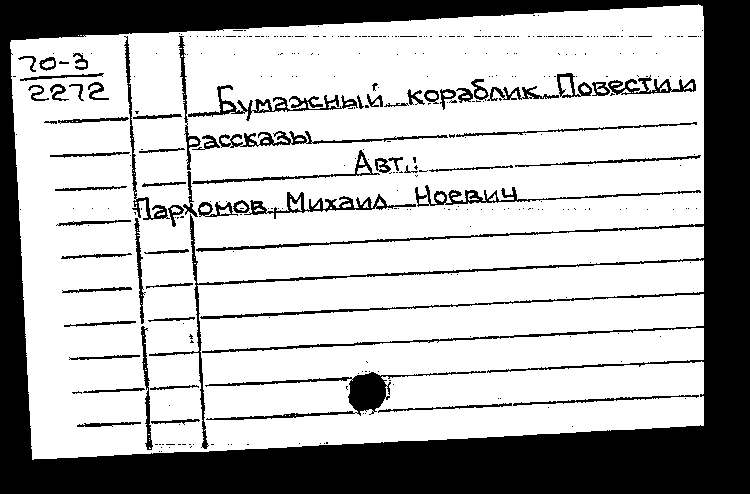 70-3
2272
Бумажный кораблик. Повести и
рассказы
Авт.:
Пархомов, Михаил Ноевич